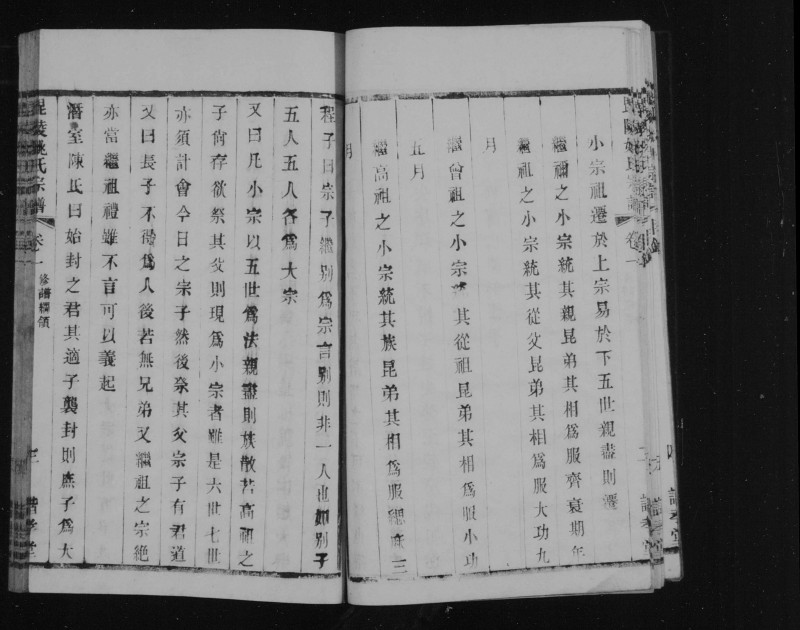 小宗祖遷於上宗易於下五世親盡則遷
繼禰之小宗統其親昆弟其相為服齊衰期年
繼祖之小宗統其從父昆弟其相為服大功九
月
繼曾祖之小宗 其從祖昆弟其相為服小功
五月
繼高祖之小宗統其族昆弟其相為服緦麻三
月
程子曰宗子繼別為宗言別則非一人也如別子
五人五人各為大宗
又曰凡小宗以五世為法親盡則族散若高祖之
子尙存欲祭其父則現為小宗者雖是六世七世
亦須計會今日之宗子然後祭其父宗子有君道
又曰長子不得為人後若無兄弟又繼祖之宗絕
亦當繼祖禮雖不言可以義起
潛室陳氏曰始封之君其適子襲封則庶子為大
毘陵姚氏宗譜
卷一
修譜綱領
三